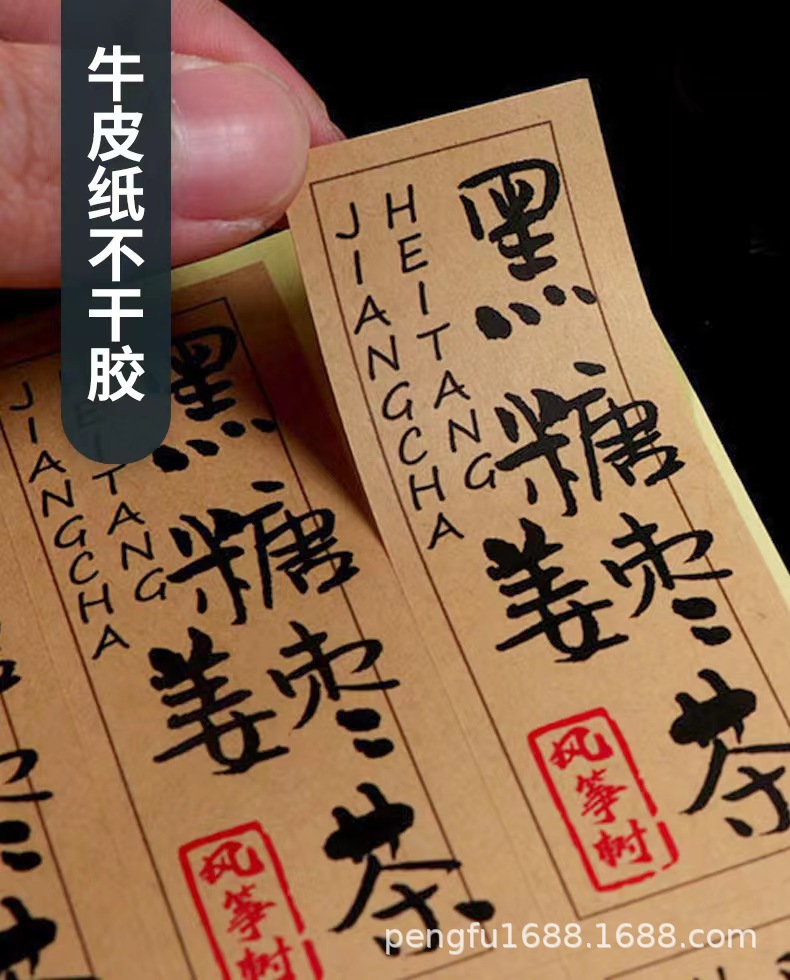 牛皮纸不干胶
黑糖姜枣茶
HEITANG
JIANGCHA
风筝树
黑糖姜枣茶
EITANG
JIANGCHA
风筝树
pengfu1688.1688.com